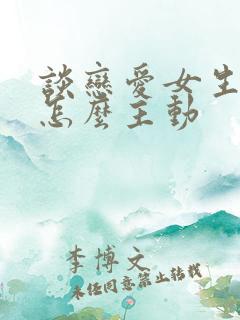 談戀愛女生
怎麼主動
李博文
未任同意禁止转载